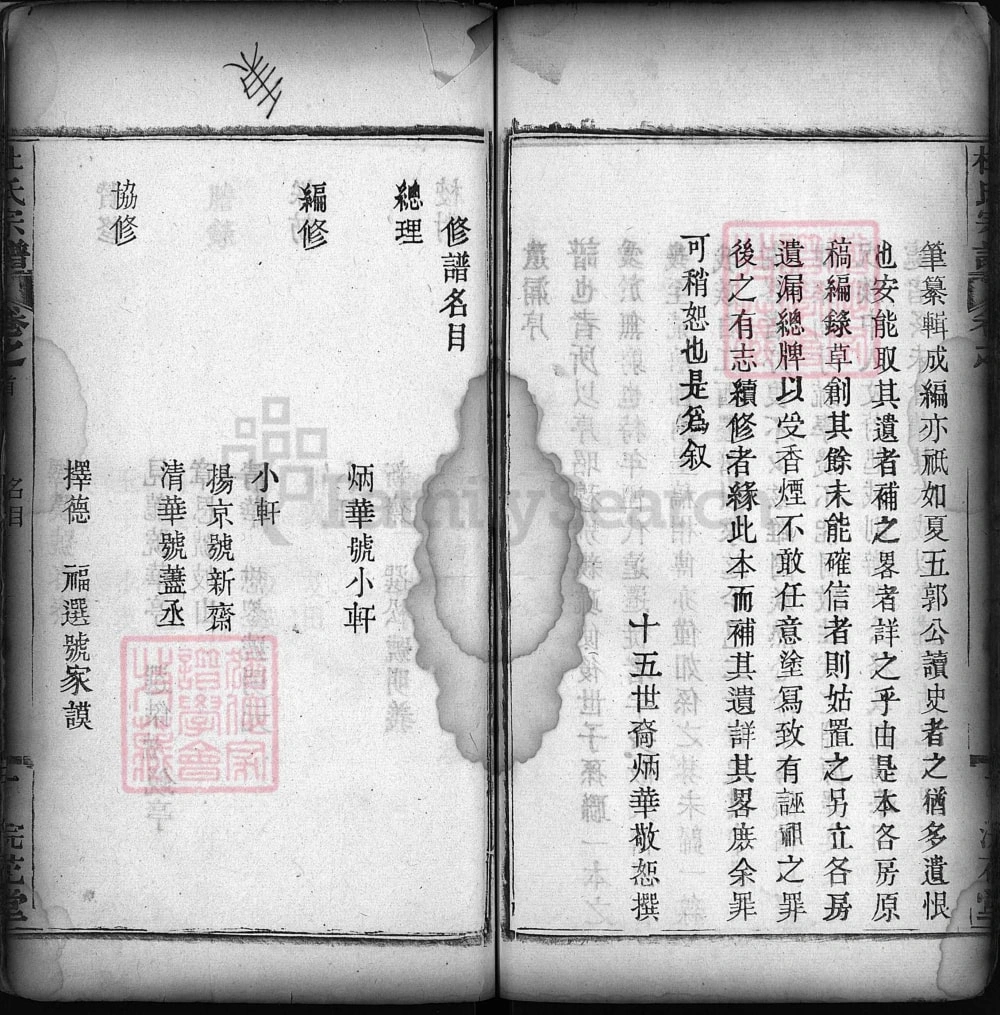 筆纂輯成編亦祇如夏五郭公讀史者之猶多遺恨
也安能取其遺者補之畧者詳之乎由是本各房原
稿編錄草創其餘未能確信者則姑置之另立各房
遺漏總牌以受香煙不敢任意塗冩致有誣祖之罪
後之有志續修者緣此本而補其遺詳其畧庶余罪
可稍恕也是爲叙
十五世裔炳華敬恕撰
修譜名目
總理
炳華號小軒
編修
小軒
揚京號新齋
清華號藎丞
協修
擇德 福選號家謨
杜氏宗譜 卷之首 名目 一 浣花堂
FamilySearch